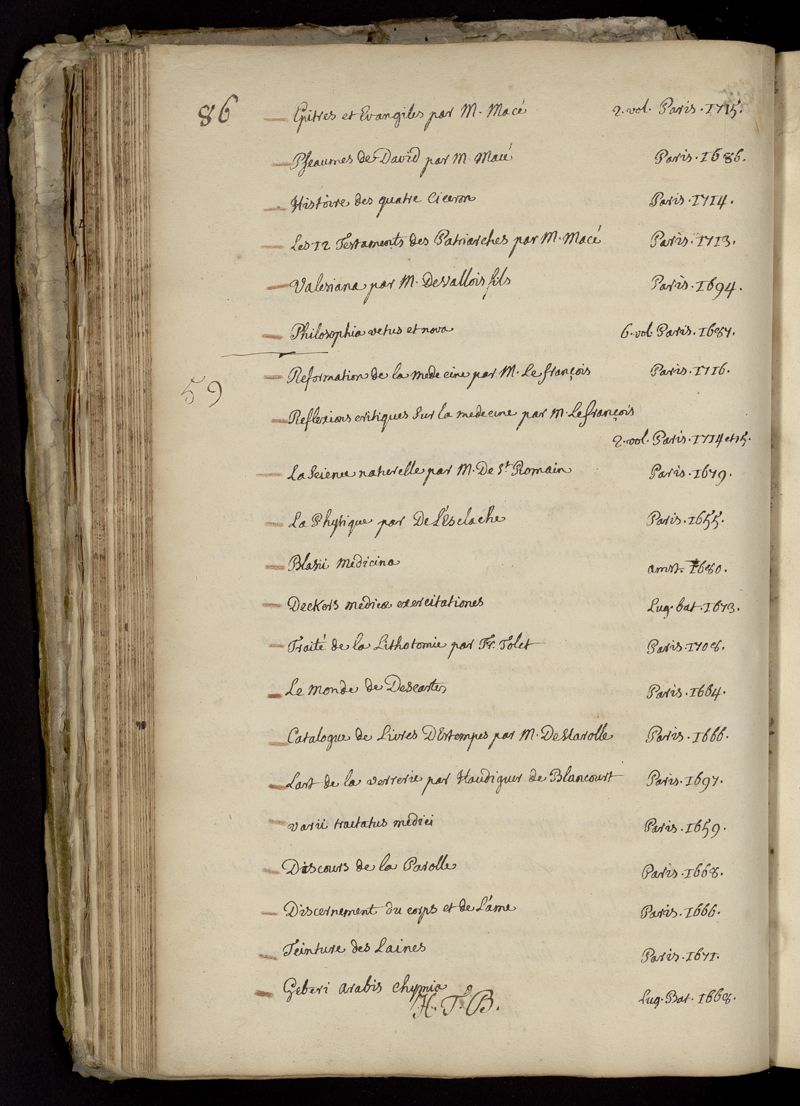 86
Epitres et Evangiles par M. Macé 2. vol. Paris. 1715.
Pseaumes de David par M. Macé Paris. 1686.
Histoire des quatre Ciceron Paris. 1714.
Les 12 Testaments des Patriarches par M. Macé Paris. 1713.
Valesiana par M. DeVallois fils Paris. 1694.
Philosophia vetus et nova 6. vol. Paris. 1687.
59
Reformation de la medecine par M. Le françois Paris. 1716.
Reflexions critiques sur la medecine par M. Le françois
2. vol. Paris. 1714 et 15.
La Science naturelle par M. De St. Romain Paris. 1679.
La Physique par De L'Esclache Paris. 1655.
Blasii medicina amst. 1680.
Deckers medicæ exercitationes Lug. bat. 1673.
Traité de la Lithotomie par Fr. Tolet Paris. 1708.
Le monde de Descartes Paris. 1664.
Catalogue de Livres D'Estempes par M. DeMarolle Paris. 1666.
L'art de la verrerie par Haudiguer de Blancourt Paris. 1697.
varii tractatus medici Paris. 1659.
Discours de la Parolle Paris. 1668.
Discernement du corps et de L'ame Paris. 1666.
Teinture des Laines Paris. 1671.
Geberi arabis chymia Lug. Bat. 1668.
H. T. B.